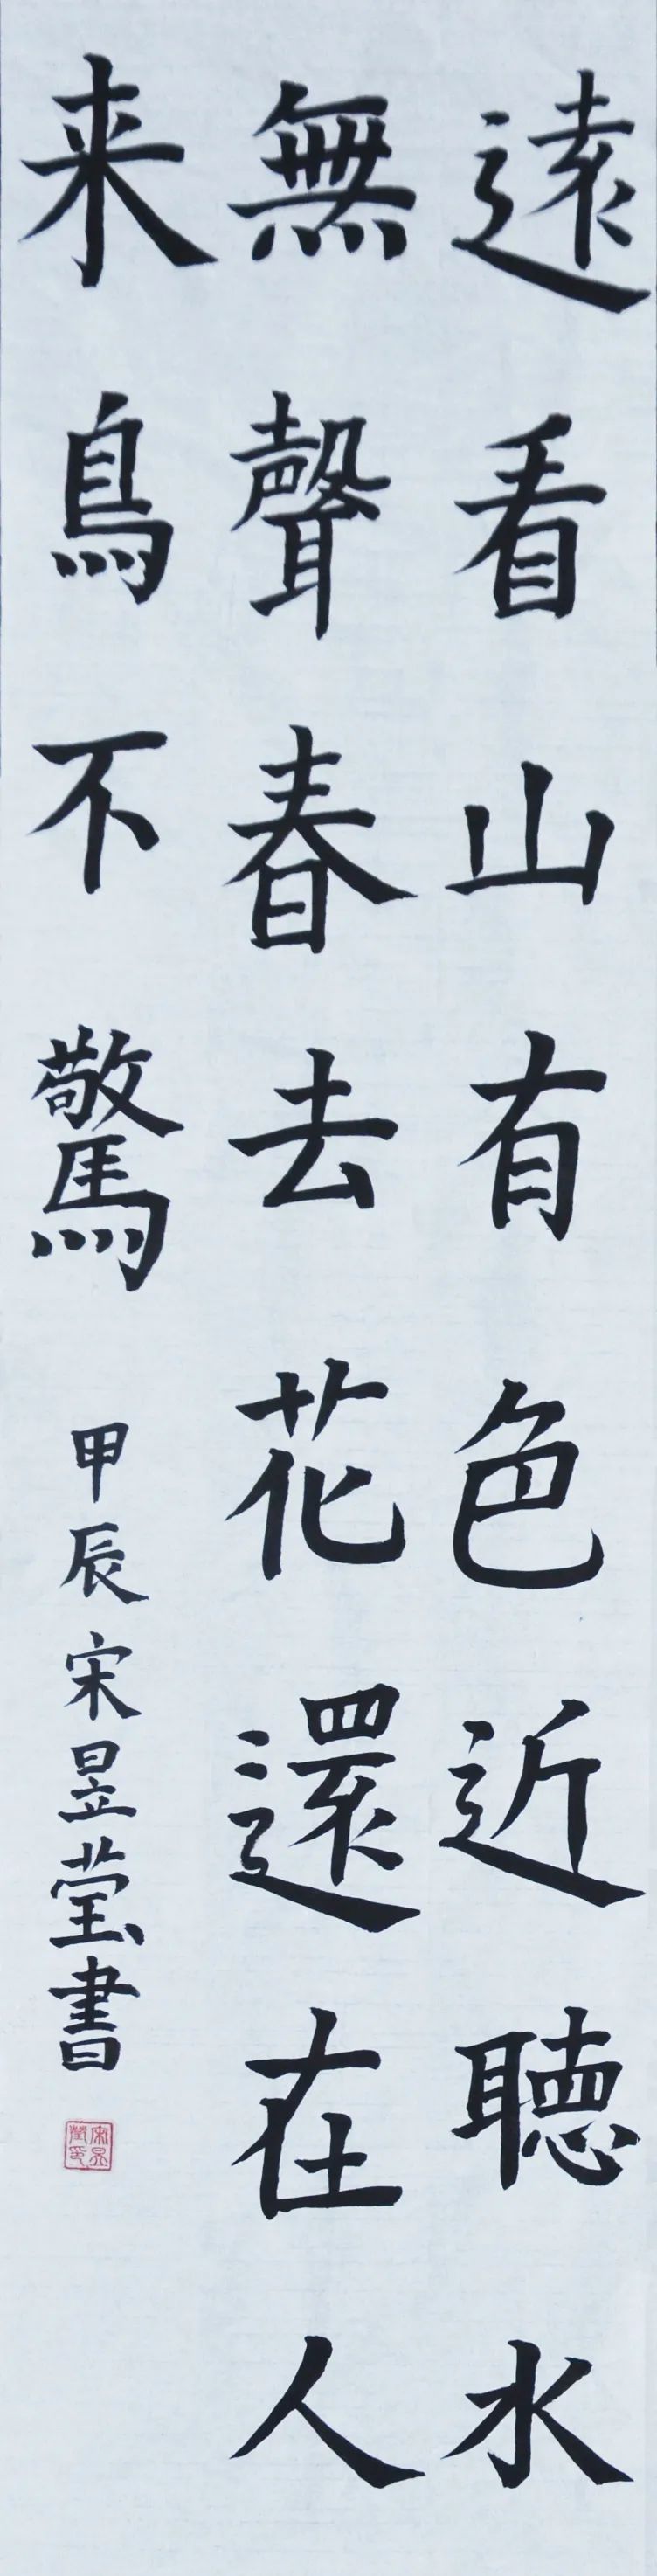 遠看山有色近聽水
無聲春去花還在人
来鳥不驚
甲辰宋昱莹書
宋昱莹印